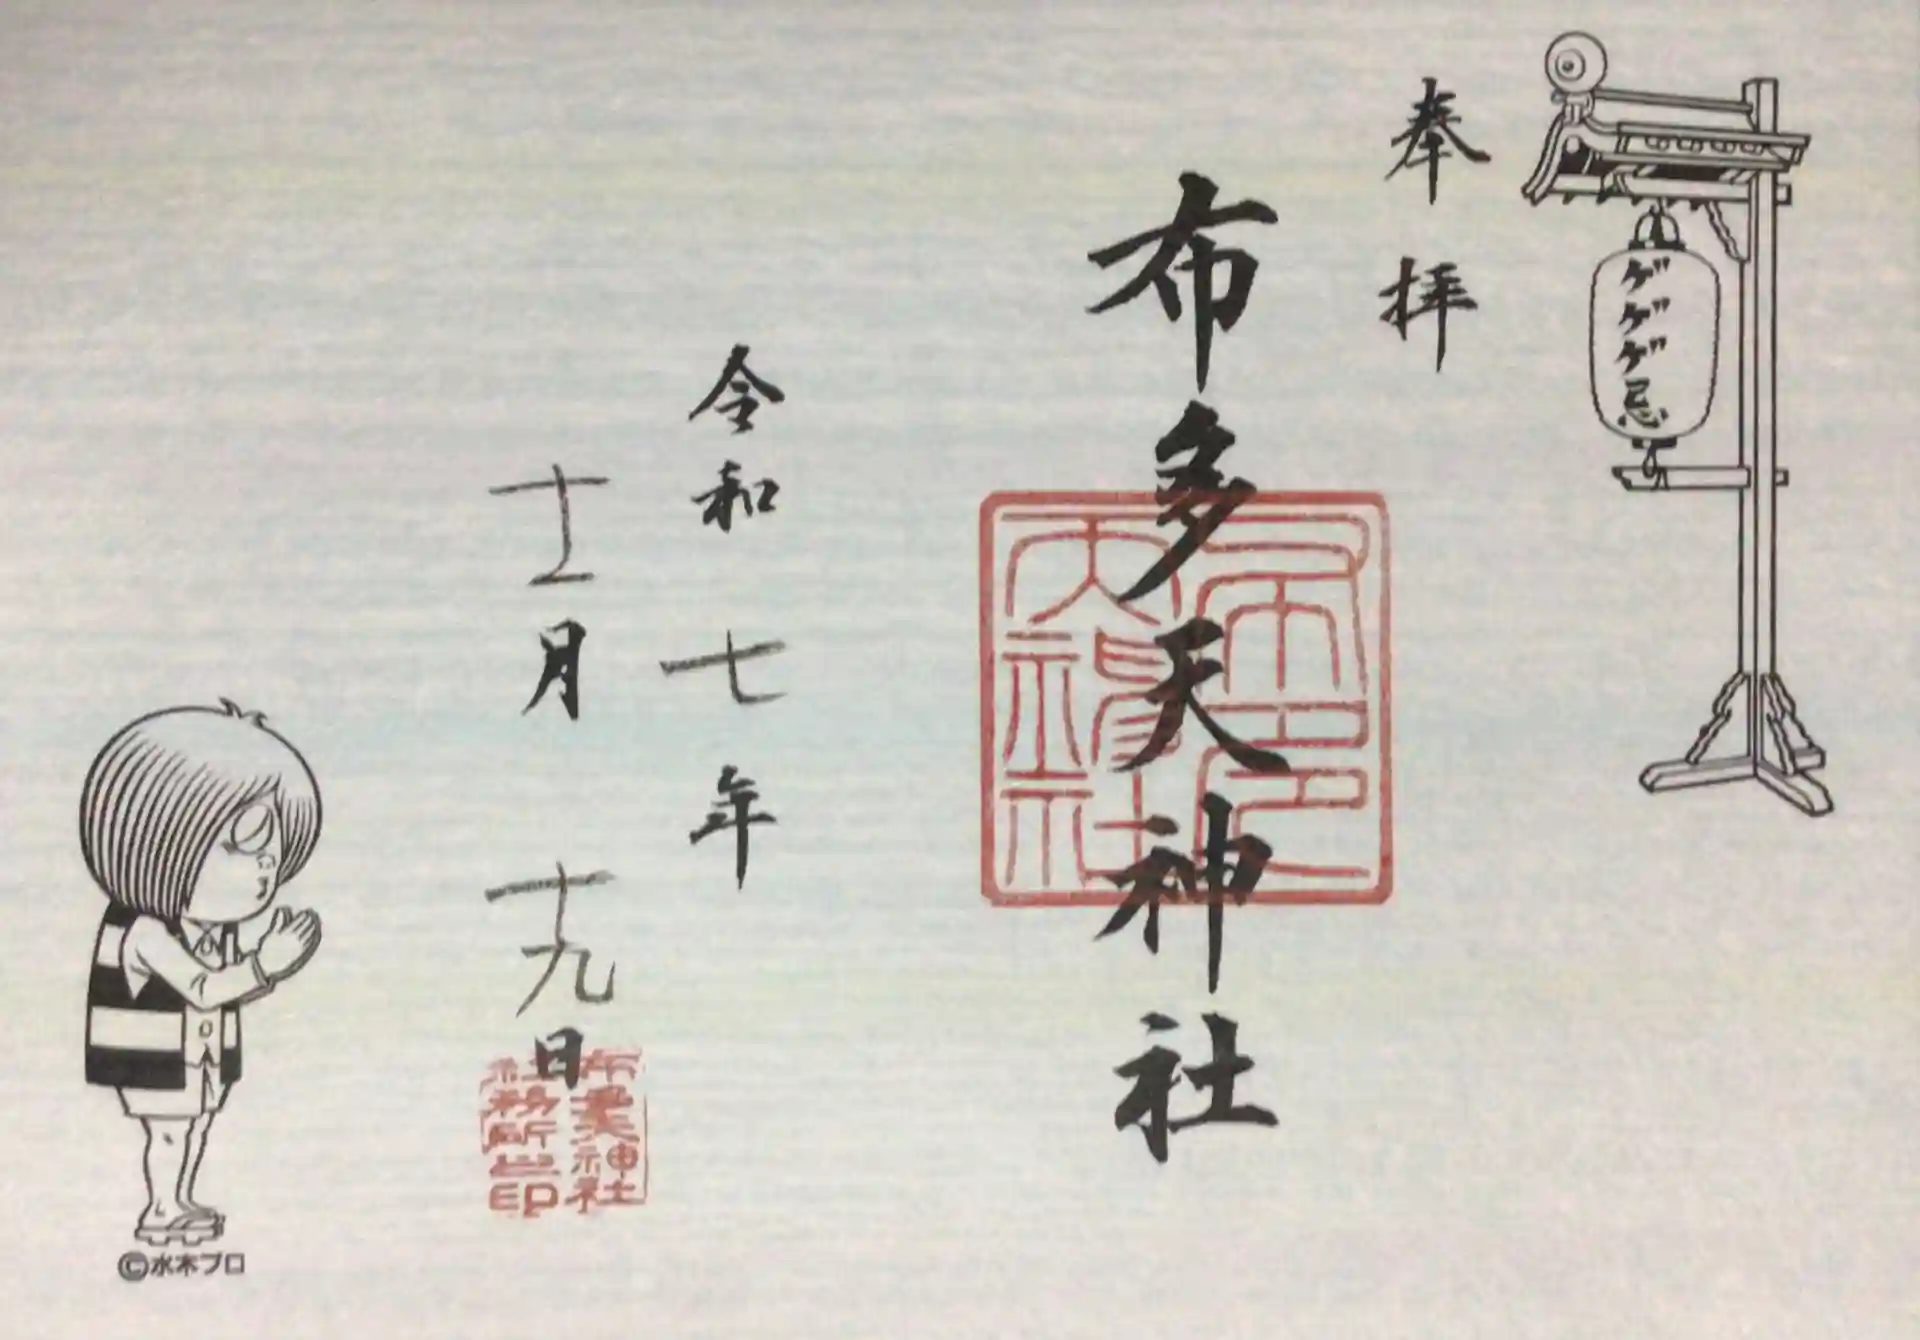 ゲゲゲ忌
奉拝
布多天神社
令和七年
十一月十九日
布多天神社
社務所之印
©水木プロ